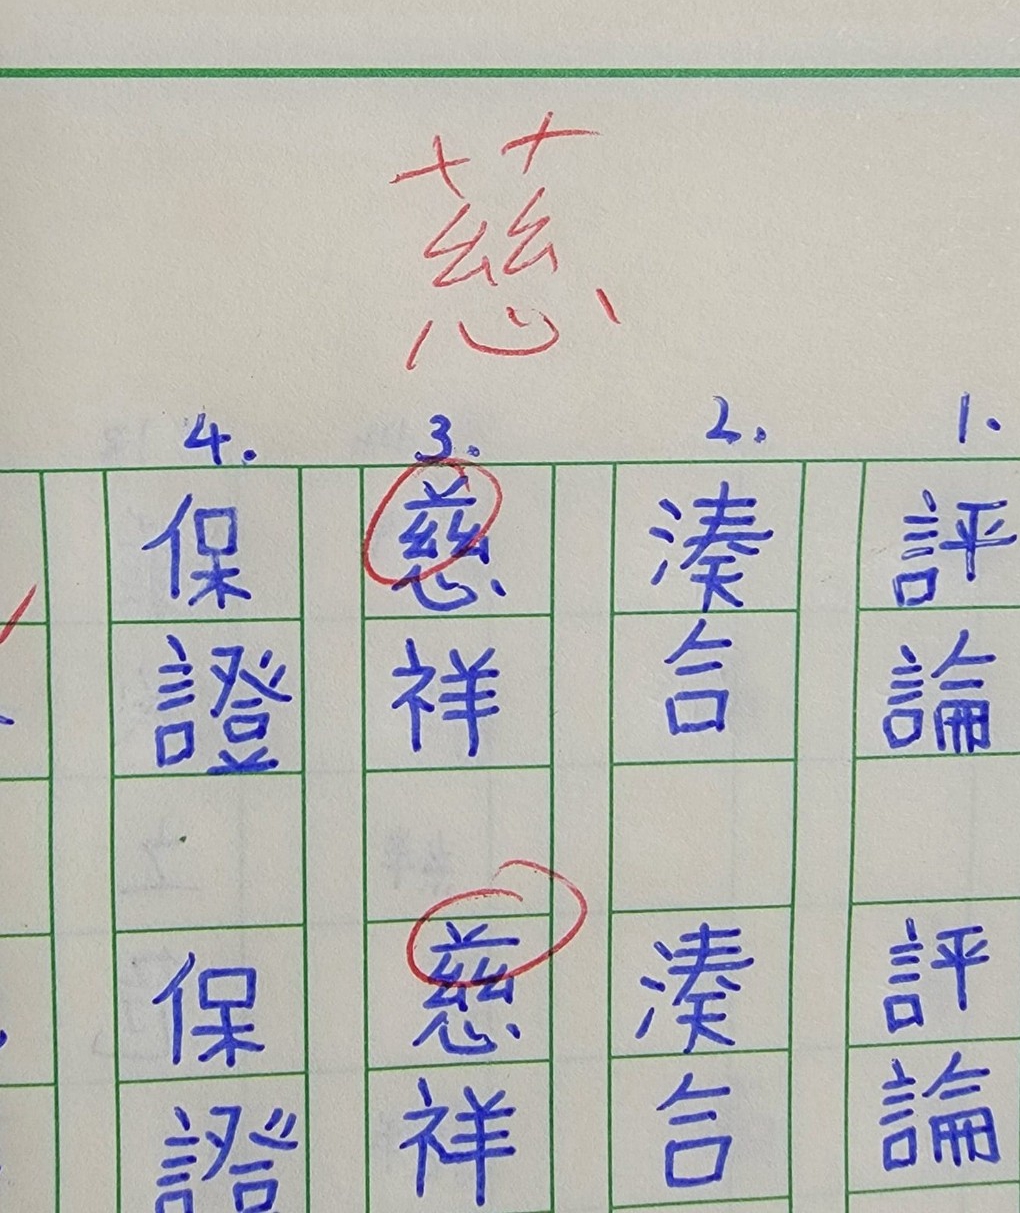 慈
1.
評論
評論
2.
湊合
湊合
3.
慈祥
慈祥
4.
保證
保證